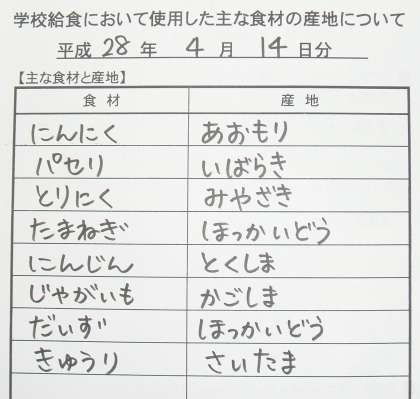 学校給食において使用した主な食材の産地について
平成 28 年 4 月 14 日分
【主な食材と産地】
食材 産地
にんにく あおもり
パセリ いばらき
とりにく みやざき
たまねぎ ほっかいどう
にんじん とくしま
じゃがいも かごしま
だいず ほっかいどう
きゅうり さいたま